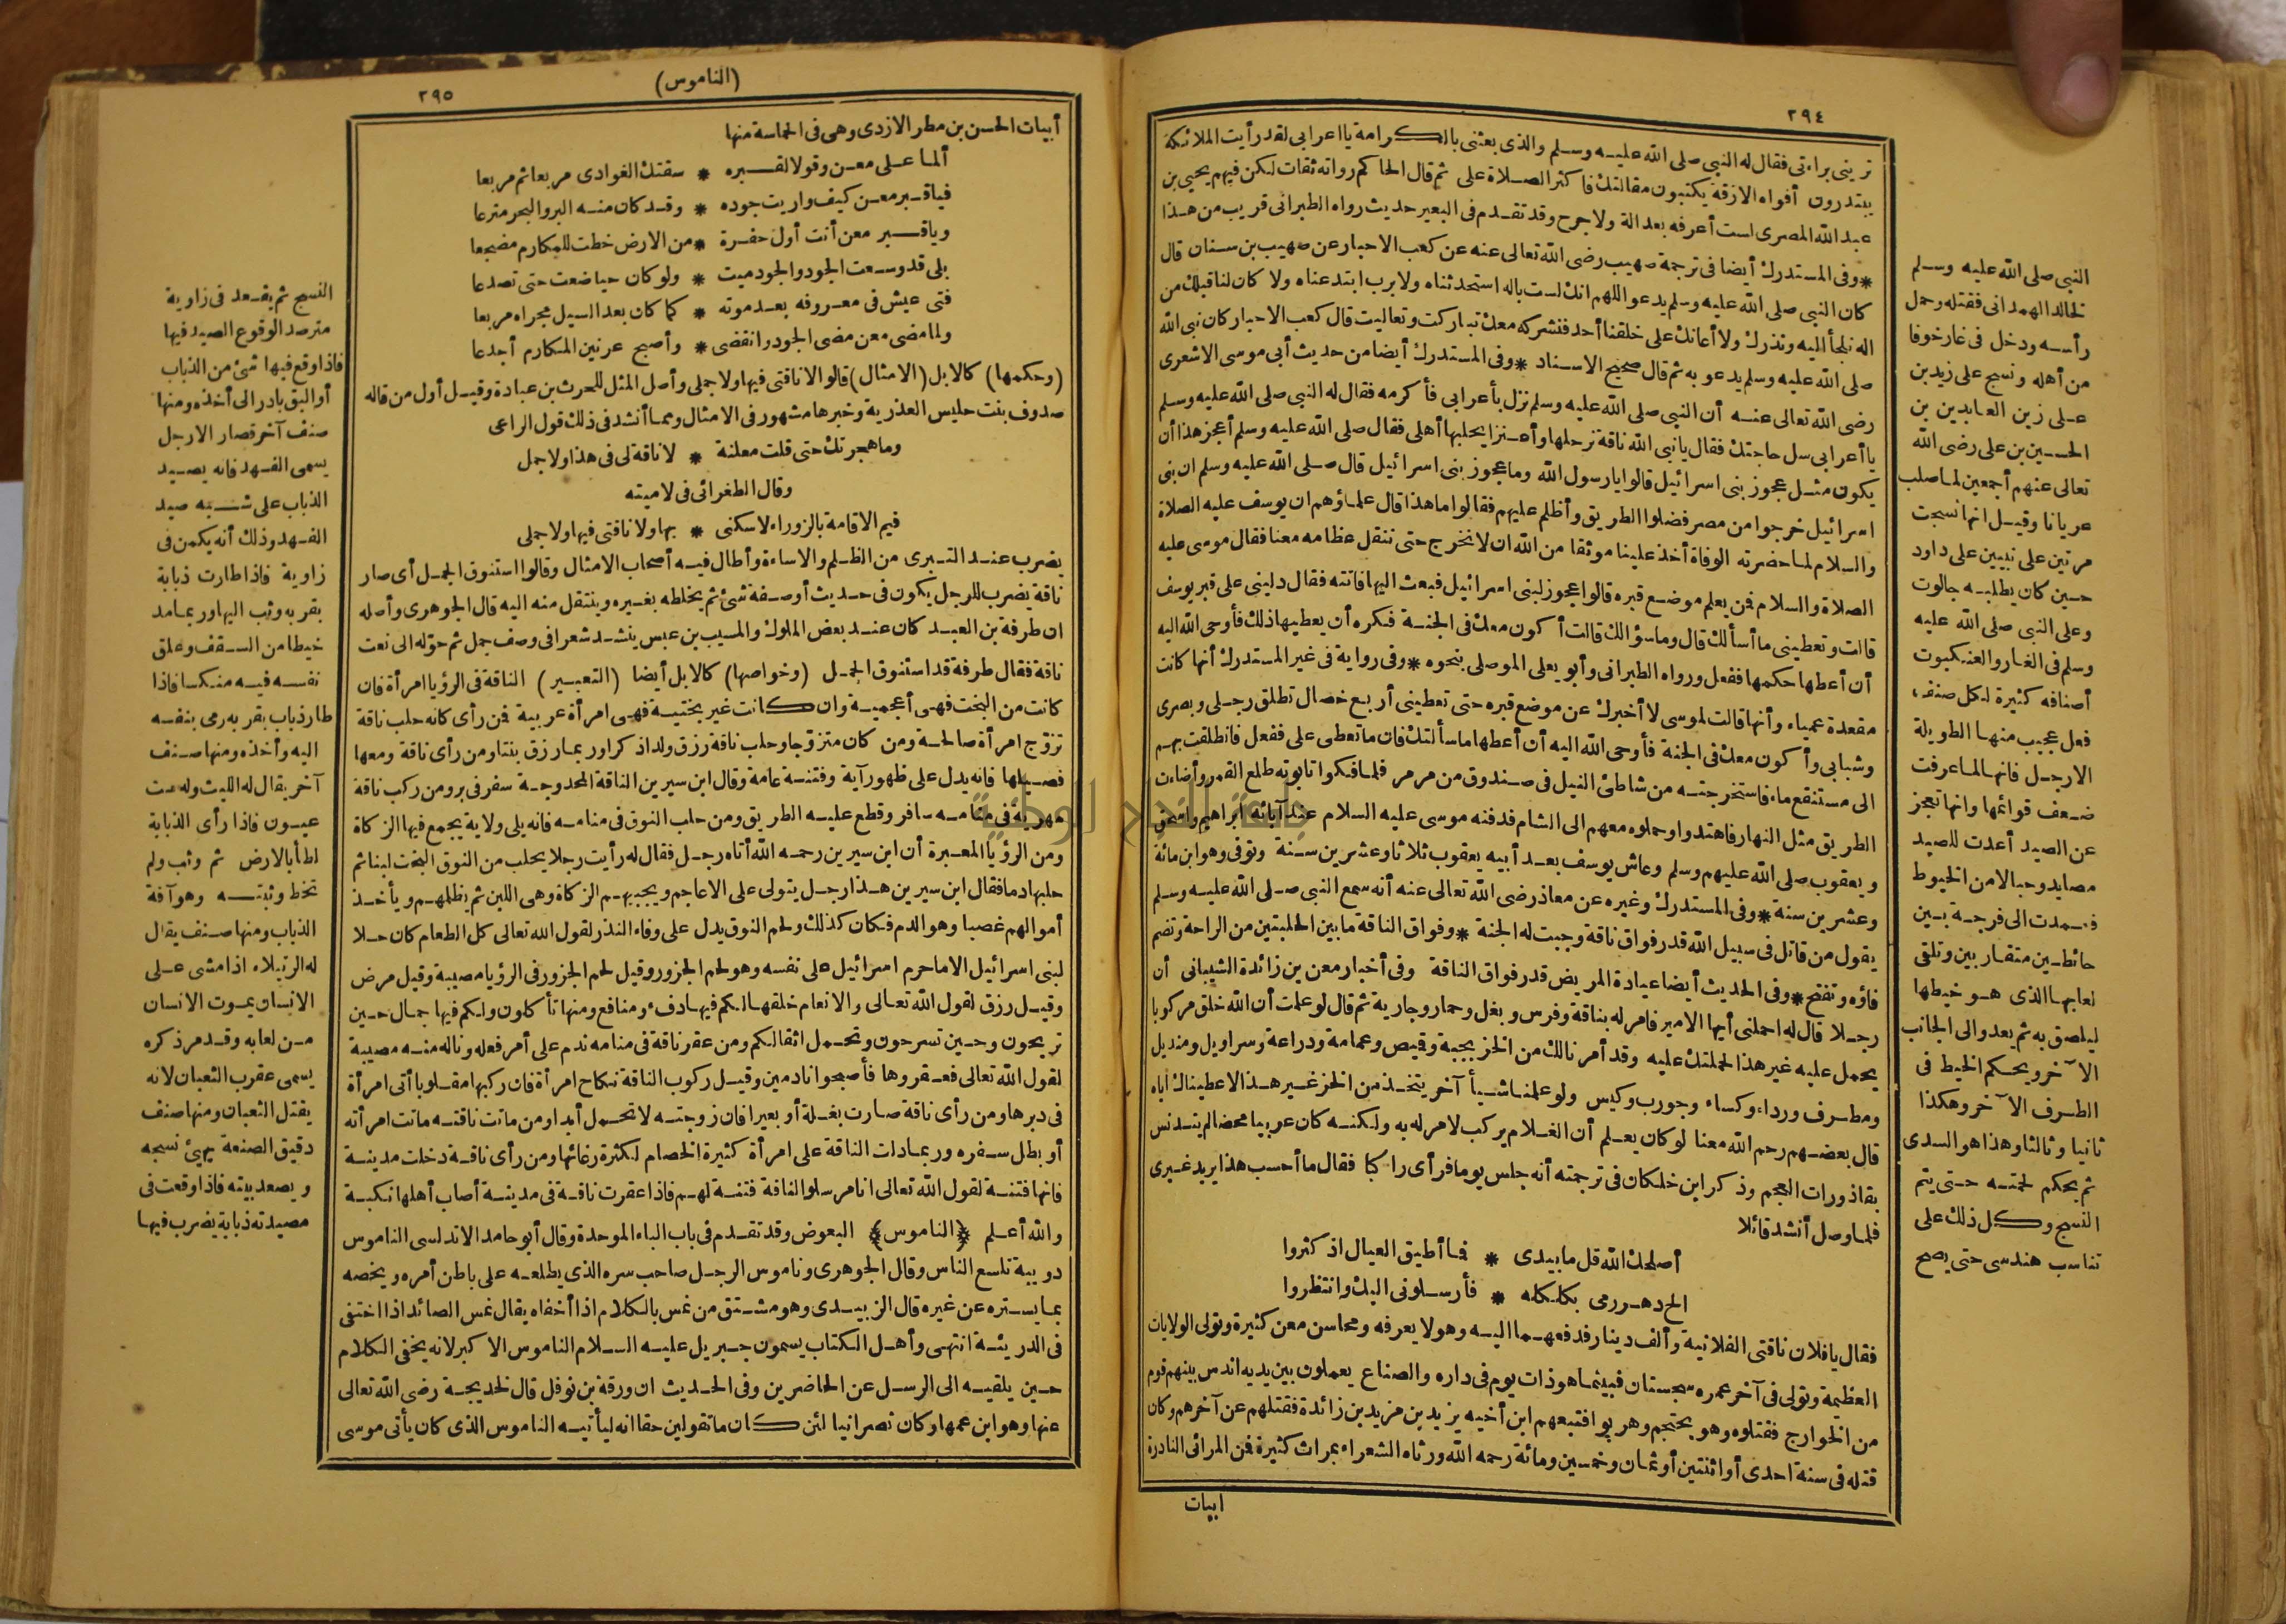 ٢٩٤
تريني براءتى فقال له النبي صلى الله عليه وسلم والذى بعثنى بالكرامة يا اعرابى لقد رأيت الملائكة
يبتدرون أفواه الازقة يكتبون مقالتك فاكثر الصلاة على ثم قال الحاكم رواته ثقات لكن فيهم يحيى بن
عبد الله المصرى لست أعرفه بعدالة ولا جرح وقد تقدم فى البعير حديث رواه الطبرانى قريب من هذا
* وفى المستدرك أيضا فى ترجمة صهيب رضى الله تعالى عنه عن كعب الاحبار عن صهيب بن سنان قال
كان النبى صلى الله عليه وسلم يدعو اللهم انك لست باله استحدثناه ولا برب ابتدعناه ولا كان لنا قبلك من
اله نلجأ اليه ونذرك ولا أعانك على خلقنا أحد فنشركه معك تباركت وتعاليت قال كعب الاحبار كان نبى الله
صلى الله عليه وسلم يدعو به ثم قال صحيح الاسناد * وفى المستدرك أيضا من حديث أبى موسى الاشعرى
رضى الله تعالى عنه أن النبى صلى الله عليه وسلم نزل بأعرابى فأكرمه فقال له النبى صلى الله عليه وسلم
يا أعرابى سل حاجتك فقال يا نبى الله ناقة نرحلها وأعنزا يحلبها أهلى فقال صلى الله عليه وسلم أعجز هذا أن
يكون مثل عجوز بنى اسرائيل قالوا يا رسول الله وما عجوز بنى اسرائيل قال صلى الله عليه وسلم ان بنى
اسرائيل خرجوا من مصر فضلوا الطريق وأظلم عليهم فقالوا ما هذا قال علماؤهم ان يوسف عليه الصلاة
والسلام لما حضرته الوفاة أخذ علينا موثقا من الله ان لا نخرج حتى ننقل عظامه معنا فقال موسى عليه
الصلاة والسلام فمن يعلم موضع قبره قالوا عجوز لبنى اسرائيل فبعث اليها فاتته فقال دلينى على قبر يوسف
قالت وتعطينى ما أسألك قال وما سؤالك قالت أكون معك فى الجنة فكره أن يعطيها ذلك فأوحى الله اليه
أن أعطها حكمها ففعل ورواه الطبرانى وأبو يعلى الموصلى بنحوه * وفى رواية فى غير المستدرك أنها كانت
مقعدة عمياء وأنها قالت لموسى لا أخبرك عن موضع قبره حتى تعطينى أربع خصال تطلق رجلى وبصرى
وشبابى وأكون معك فى الجنة فأوحى الله اليه أن أعطها ما سألتك فان ما تعطى على ففعل فانطلقت بهم
الى مستنقع ماء فاستخرجته من شاطئ النيل فى صندوق من مرمر فلما فكوا تابوته طلع القمر وأضاءت
الطريق مثل النهار فاهتدوا وحملوه معهم الى الشام فدفنه موسى عليه السلام عند آبائه ابراهيم واسحق
ويعقوب صلى الله عليهم وسلم وعاش يوسف بعد أبيه يعقوب ثلاثا وعشرين سنة وتوفى وهو ابن مائة
وعشرين سنة * وفى المستدرك وغيره عن معاذ رضى الله تعالى عنه أنه سمع النبى صلى الله عليه وسلم
يقول من قاتل فى سبيل الله قدر فواق ناقة وجبت له الجنة * وفواق الناقة ما بين الحلبتين من الراحة وتضم
فاؤه وتفتح * وفى الحديث أيضا عيادة المريض قدر فواق الناقة وفى أخبار معن بن زائدة الشيبانى أن
رجلا قال له احملنى أيها الامير فامر له بناقة وفرس وبغل وحمار وجارية ثم قال لو علمت أن الله خلق مركوبا
يحمل عليه غير هذا لحملتك عليه وقد أمر نا لك من الخز بجبة وقميص وعمامة ودراعة وسراويل ومنديل
ومطرف ورداء وكساء وجورب وكيس ولو علمنا شيأ آخر يتخذ من الخز غير هذا لاعطيناك اياه
قال بعضهم رحم الله معنا لو كان يعلم أن الغلام يركب لامر له به ولكنه كان عربيا محضا لم يتدنس
بقاذورات العجم وذكر ابن خلكان فى ترجمته أنه جلس يوما فرأى راكبا فقال ما أحسب هذا يريد غيرى
فلما وصل أنشد قائلا
أصلحك الله قل ما بيدى * فما أطيق العيال اذ كثروا
الح دهر رمى بكلكله * فأرسلونى اليك وانتظروا
فقال يا فلان ناقتى الفلانية وألف دينار فدفعهما اليه وهو لا يعرفه ومحاسن معن كثيرة وتولى الولايات
العظيمة وتولى فى آخر عمره سجستان فبينما هو ذات يوم فى داره والصناع يعملون بين يديه اندس بينهم قوم
من الخوارج فقتلوه وهو يحتجم وهربوا فتبعهم ابن أخيه يزيد بن مزيد بن زائدة فقتلهم عن آخرهم وكان
قتله فى سنة احدى أو اثنتين أو ثمان وخمسين ومائة رحمه الله ورثاه الشعراء بمراث كثيرة فمن المراثى النادرة
ابيات
النبى صلى الله عليه وسلم
لخالد الهمدانى فقتله وحمل
رأسه ودخل فى غار خوفا
من أهله ونسج على زيد بن
على زين العابدين بن
الحسين بن على رضى الله
تعالى عنهم أجمعين لما صلب
عريانا وقيل انها نسجت
مرتين على نبيين على داود
حين كان يطلبه جالوت
وعلى النبى صلى الله عليه
وسلم فى الغار والعنكبوت
أصنافه كثيرة لكل صنف
فعل عجيب منها الطويلة
الارجل فانها لما عرفت
ضعف قوائمها وانها تعجز
عن الصيد أعدت للصيد
مصايد وحبالا من الخيوط
فعمدت الى فرجة بين
حائطين متقاربين وتلقى
لعابها الذى هو خيطها
ليلصق به ثم يعدو الى الجانب
الآخر ويحكم الخيط فى
الطرف الآخر وهكذا
ثانيا وثالثا وهذا هو السدى
ثم يحكم لحمته حتى يتم
النسج وكل ذلك على
تناسب هندسى حتى يصح
(الناموس)
٢٩٥
أبيات الحسن بن مطر الازدى وهى فى الحماسة منها
ألما على معن وقولا لقبره * سقتك الغوادى مربعا ثم مربعا
فيا قبر معن كيف واريت جوده * وقد كان منه البر والبحر مترعا
ويا قبر معن أنت أول حفرة * من الارض خطت للمكارم مضجعا
بلى قد وسعت الجود والجود ميت * ولو كان حيا ضقت حتى تصدعا
فتى عيش فى معروفه بعد موته * كما كان بعد السيل مجراه مربعا
ولما مضى معن مضى الجود وانقضى * وأصبح عرنين المكارم أجدعا
(وحكمها) كالابل (الامثال) قالوا لا ناقتى فيها ولا جملى وأصل المثل للحرث بن عبادة وقيل أول من قاله
صدوف بنت حليس العذرية وخبرها مشهور فى الامثال ومما أنشد فى ذلك قول الراعى
وما هجرتك حتى قلت معلنة * لا ناقة لى فى هذا ولا جمل
وقال الطغرائى فى لاميته
فيم الاقامة بالزوراء لا سكنى * بها ولا ناقتى فيها ولا جملى
يضرب عند التبرى من الظلم والاساءة وأطال فيه أصحاب الامثال وقالوا استنوق الجمل أى صار
ناقة يضرب للرجل يكون فى حديث أو صفة شئ ثم يخلطه بغيره وينتقل منه اليه قال الجوهرى وأصله
ان طرفة بن العبد كان عند بعض الملوك والمسيب بن عبس ينشد شعرا فى وصف جمل ثم حوّله الى نعت
ناقة فقال طرفة قد استنوق الجمل (وخواصها) كالابل أيضا (التعبير) الناقة فى الرؤيا امرأة فان
كانت من البخت فهى أعجمية وان كانت غير بختية فهى امرأة عربية فمن رأى كانه حلب ناقة
تزوّج امرأة صالحة ومن كان متزوّجا وحلب ناقة رزق ولدا ذكرا وربما رزق بنتا ومن رأى ناقة ومعها
فصيلها فانه يدل على ظهور آية وفتنة عامة وقال ابن سيرين الناقة المحدوجة سفر فى بر ومن ركب ناقة
مهرية فى منامه سافر وقطع عليه الطريق ومن حلب النوق فى منامه فانه يلى ولاية يجمع فيها الزكاة
ومن الرؤيا المعبرة أن ابن سيرين رحمه الله أتاه رجل فقال له رأيت رجلا يحلب من النوق البخت لبنا ثم
حلبها دما فقال ابن سيرين هذا رجل يتولى على الاعاجم ويجبيهم الزكاة وهى اللبن ثم يظلمهم ويأخذ
أموالهم غصبا وهو الدم فكان كذلك ولحم النوق يدل على وفاء النذر لقول الله تعالى كل الطعام كان حلا
لبنى اسرائيل الا ما حرم اسرائيل على نفسه وهو لحم الجزور وقيل لحم الجزور فى الرؤيا مصيبة وقيل مرض
وقيل رزق لقول الله تعالى والانعام خلقها لكم فيها دفء ومنافع ومنها تأكلون ولكم فيها جمال حين
تريحون وحين تسرحون وتحمل اثقالكم ومن عقر ناقة فى منامه ندم على أمر فعله وناله منه مصيبة
لقول الله تعالى فعقروها فأصبحوا نادمين وقيل ركوب الناقة نكاح امرأة فان ركبها مقلوبا أتى امرأة
فى دبرها ومن رأى ناقة صارت بغلة أو بعيرا فان زوجته لا تحمل أبدا ومن ماتت ناقته ماتت امرأته
أو بطل سفره وربما دات الناقة على امرأة كثيرة الخصام لكثرة رغائها ومن رأى ناقة دخلت مدينة
فانها فتنة لقول الله تعالى انا مرسلو الناقة فتنة لهم فاذا عقرت ناقة فى مدينة أصاب أهلها نكبة
والله أعلم (الناموس) البعوض وقد تقدم فى باب الباء الموحدة وقال أبو حامد الاندلسى الناموس
دويبة تلسع الناس وقال الجوهرى وناموس الرجل صاحب سره الذى يطلعه على باطن أمره ويخصه
بما يستره عن غيره قال الزبيدى وهو مشتق من نمس بالكلام اذا أخفاه يقال نمس الصائد اذا اختفى
فى الدريئة انتهى وأهل الكتاب يسمون جبريل عليه السلام الناموس الاكبر لانه يخفى الكلام
حين يلقيه الى الرسل عن الحاضرين وفى الحديث ان ورقة بن نوفل قال لخديجة رضى الله تعالى
عنها وهو ابن عمها وكان نصرانيا لئن كان ما تقولين حقا انه ليأتيه الناموس الذى كان يأتى موسى
النسج ثم يقعد فى زاوية
مترصد الوقوع الصيد فيها
فاذا وقع فيها شئ من الذباب
أو البق بادر الى أخذه ومنها
صنف آخر قصار الارجل
يسمى الفهد فانه يصيد
الذباب على شبه صيد
الفهد وذلك أنه يكمن فى
زاوية فاذا طارت ذبابة
بقربه وثب اليها وربما مد
خيطا من السقف وعلق
نفسه فيه منكسا فاذا
طار ذباب بقربه رمى بنفسه
اليه وأخذه ومنها صنف
آخر يقال له الليث وله ست
عيون فاذا رأى الذبابة
لطأ بالارض ثم وثب ولم
تخط وثبته وهو آفة
الذباب ومنها صنف يقال
له الرتيلاء اذا مشى على
الانسان يموت الانسان
من لعابه وقد مر ذكره
يسمى عقرب الثعبان لانه
يقتل الثعبان ومنها صنف
دقيق الصنعة يهيئ نسجه
ويصعد بيته فاذا وقعت فى
مصيدته ذبابة يضرب فيها